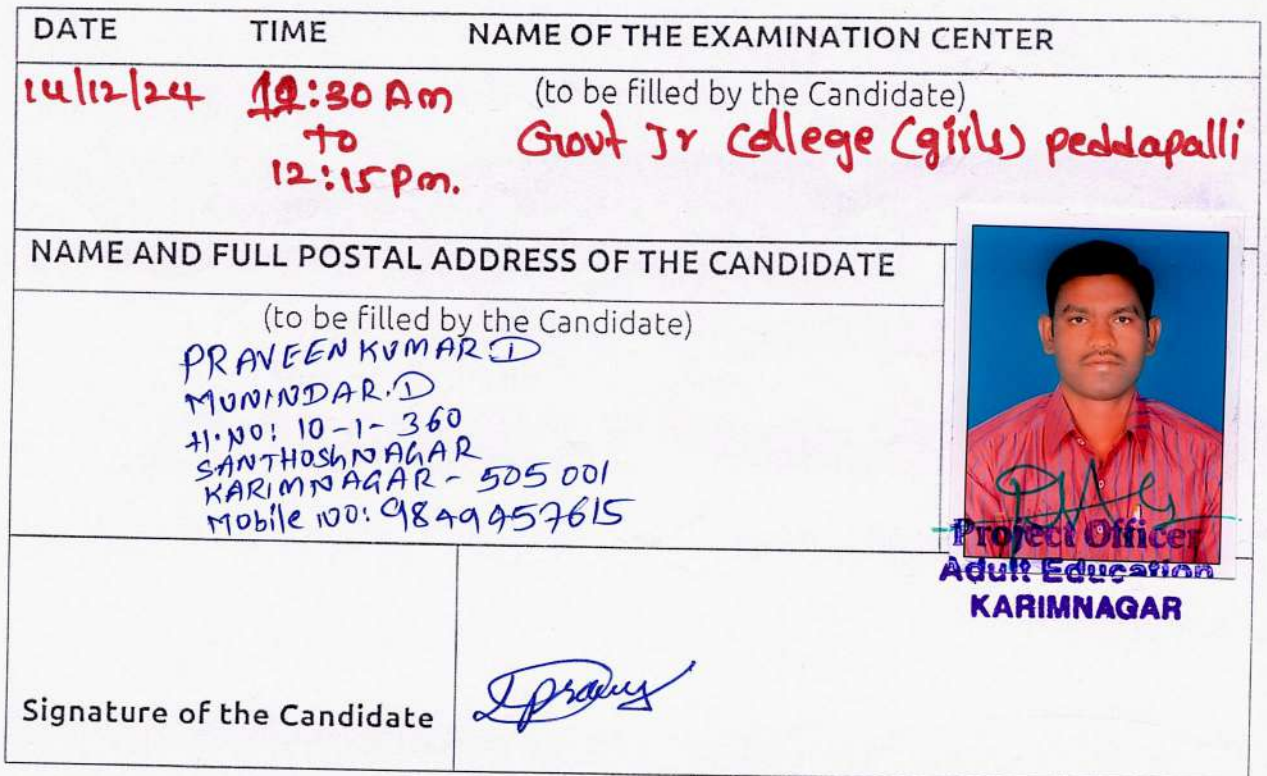 DATE TIME NAME OF THE EXAMINATION CENTER
(to be filled by the Candidate)
14/12/24 10:30 Am Govt Jr College (girls) peddapalli
to
12:15 Pm.
NAME AND FULL POSTAL ADDRESS OF THE CANDIDATE
(to be filled by the Candidate)
PRAVEEN KUMAR.D
MUNINDAR.D
H.NO: 10-1-360
SANTHOSHNAGAR
KARIMNAGAR - 505 001
Mobile NO: 9849957615
Project Officer
Adult Education
KARIMNAGAR
Signature of the Candidate